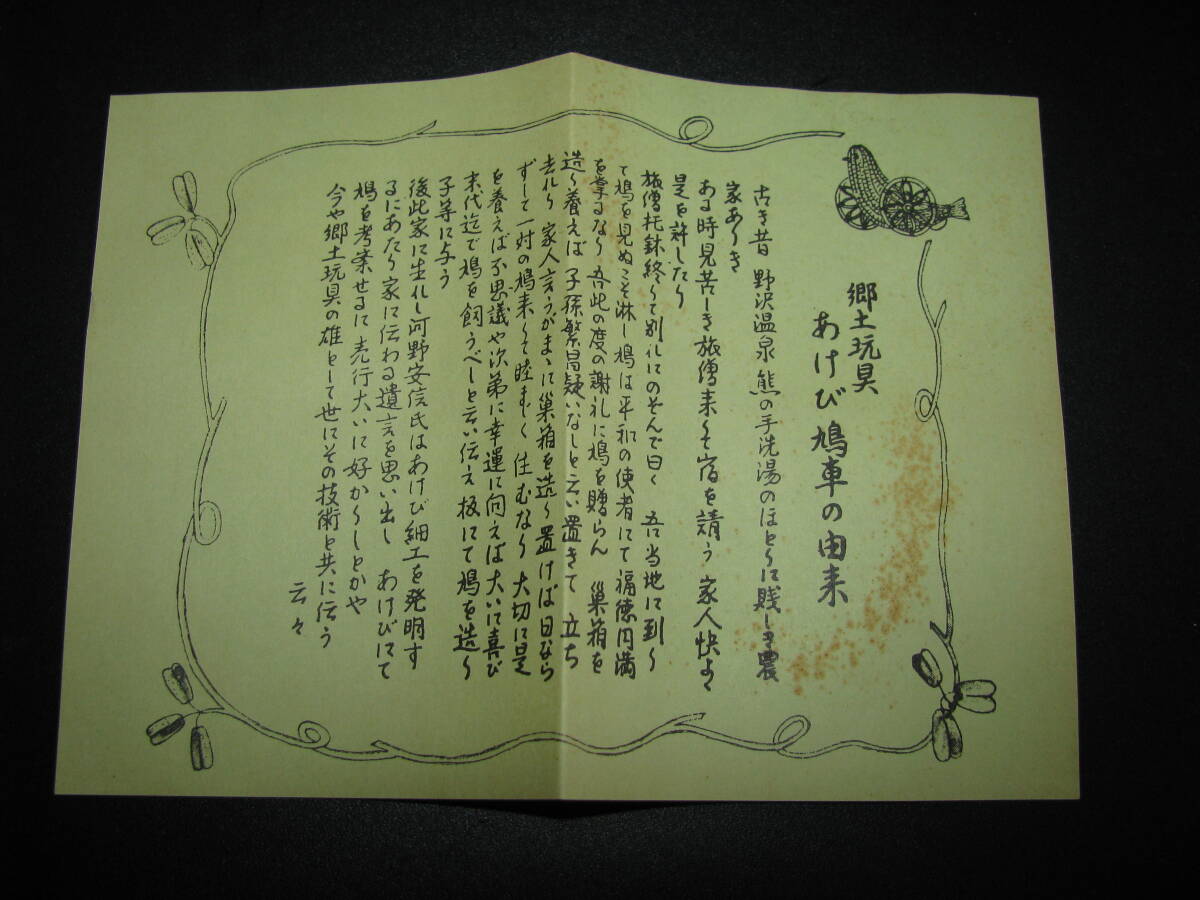 郷土玩具
あけび鳩車の由来
古き昔 野沢温泉 熊の手洗湯のほとりに賤しき農
家ありき
ある時見苦しき旅僧来りて宿を請う 家人快よく
是を許したり
旅僧托鉢終りて別れにのぞんで曰く 吾当地に到り
て鳩を見ぬこそ淋し鳩は平和の使者にて福徳円満
を掌るなり 吾此の度の謝礼に鳩を贈らん 巣箱を
造り養えば 子孫繁昌疑いなしと云い置きて 立ち
去れり 家人言うがまゝに巣箱を造り置けば日なら
ずして一対の鳩来りて睦ましく住むなり 大切に是
を養えば不思議や次第に幸運に向えば大いに喜び
末代迄で鳩を飼うべしと云い伝え 板にて鳩を造り
子等に与う
後此家に生れし河野安信氏はあけび細工を発明す
るにあたり家に伝わる遺言を思い出し あけびにて
鳩を考案せるに売行大いに好かりしとかや
今や郷土玩具の雄として世にその技術と共に伝う
云々